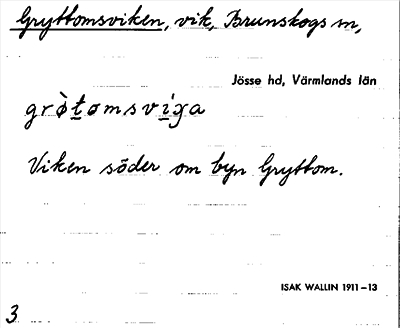 Gryttomsviken, vik, Brunskogs sn,
Jösse hd, Värmlands län
grø̀tomsvíga
Viken söder om byn Gryttom.
ISAK WALLIN 1911–13
3